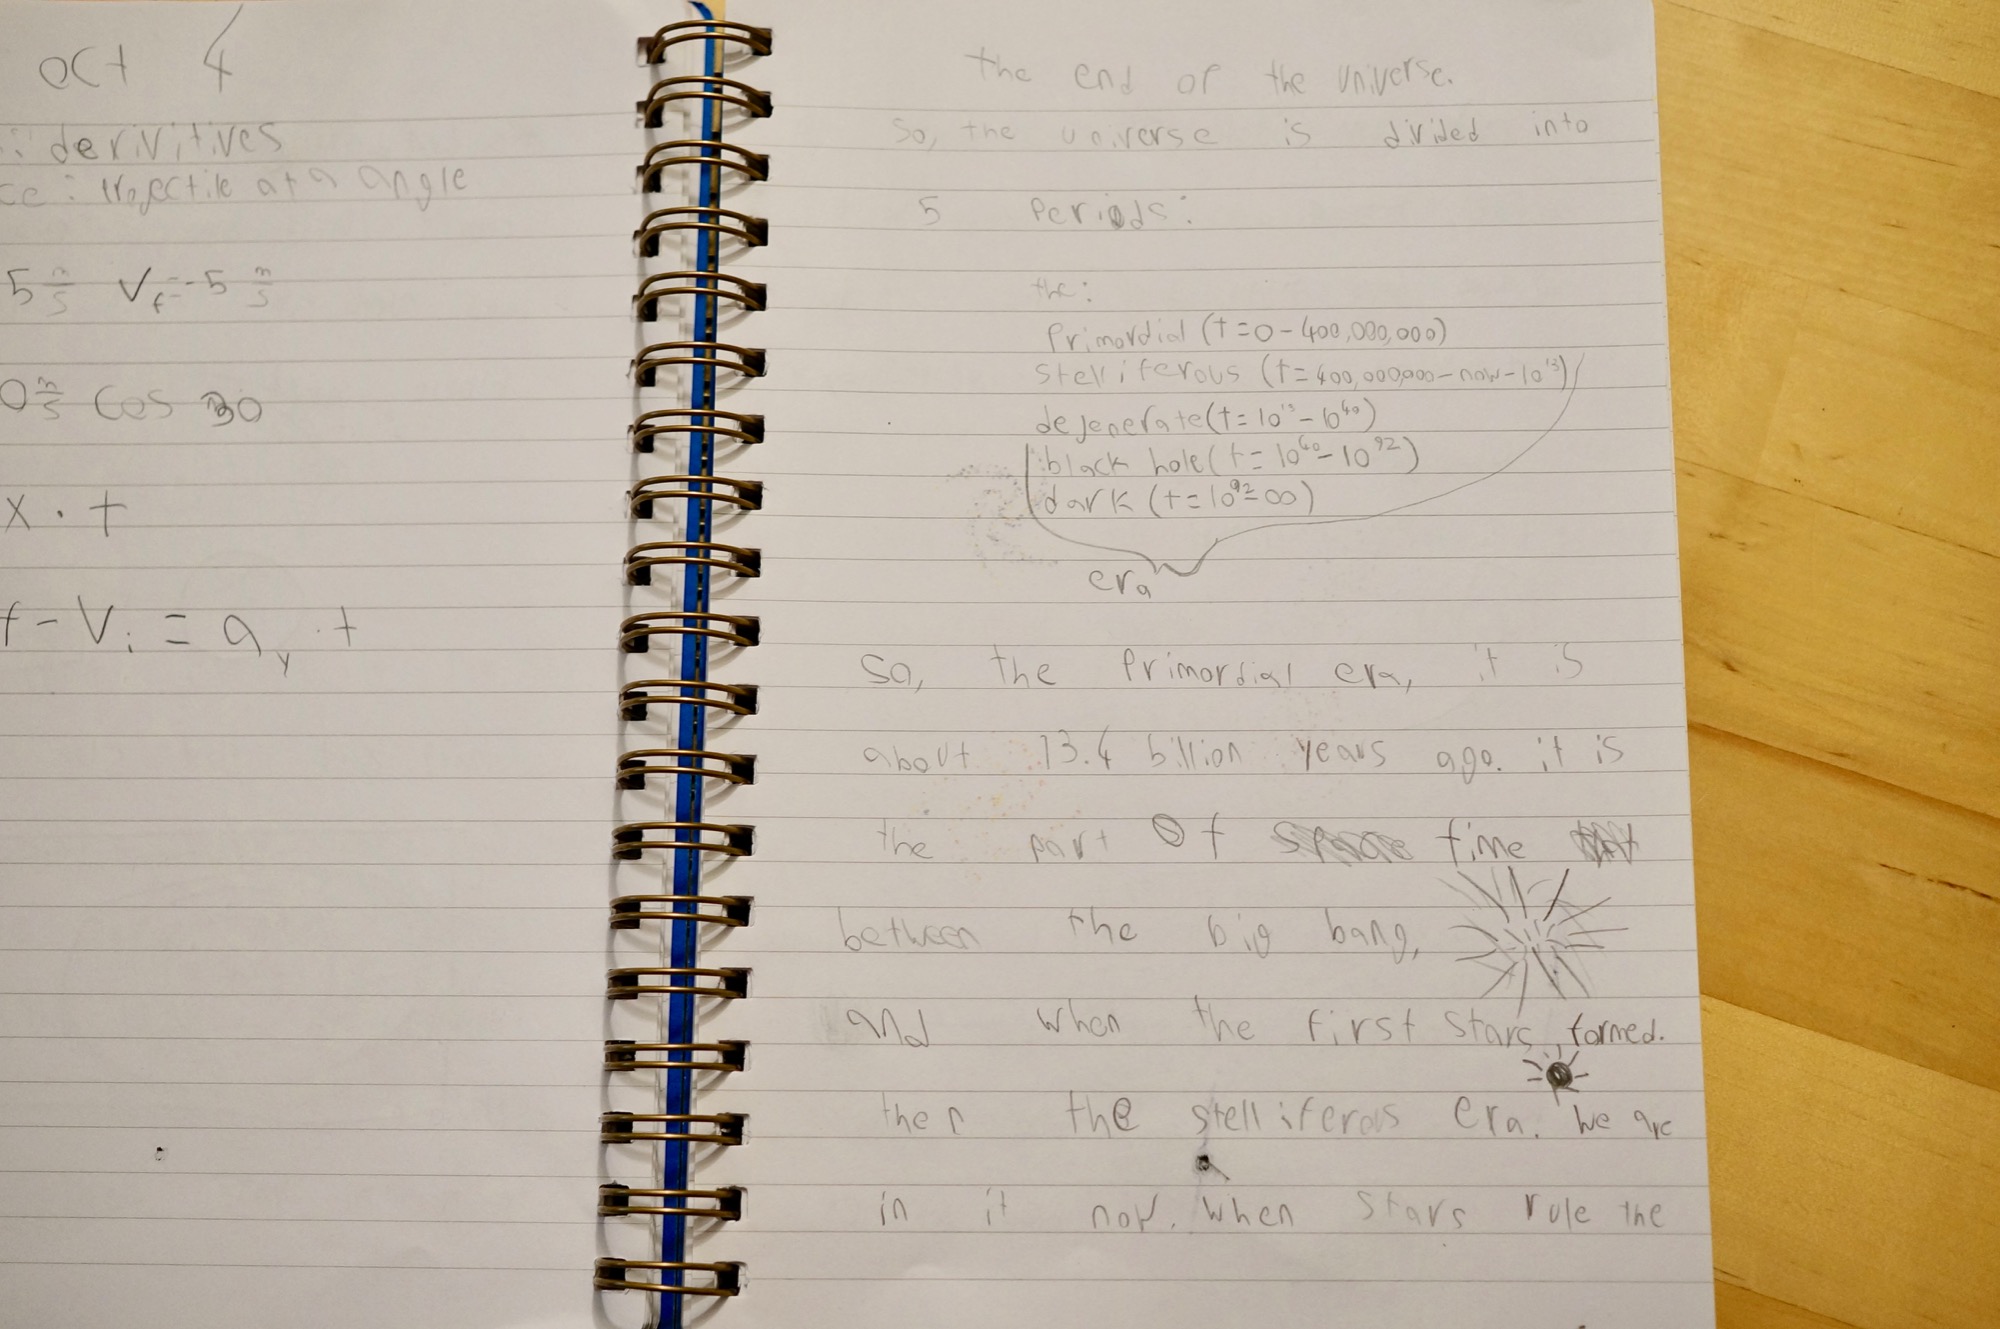 oct 4
: derivitives
ce: Projectile at a angle
5 m/s Vf=-5 m/s
0 m/s cos 30
x · t
f - Vi = ay · t
the end of the universe.
So, the universe is divided into
5 Periods:
the:
Primordial (t=0-400,000,000)
Stelliferous (t=400,000,000-now-10¹³)
degenerate (t=10¹³-10⁴⁰)
black hole (t=10⁴⁰-10⁹²)
dark (t=10⁹²-∞)
era
So, the Primordial era, it is
about 13.4 billion years ago. it is
the part of time
between the big bang,
and when the first stars formed.
then the stelliferous era. We are
in it now. When stars rule the